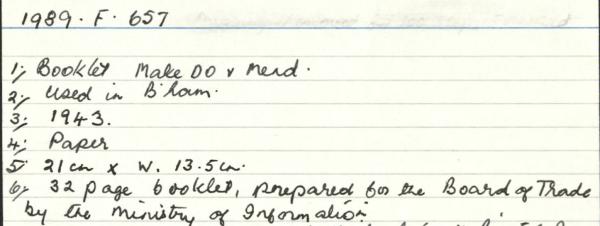 1989. F. 657
1; Booklet Make Do & Mend.
2; Used in B'ham.
3; 1943.
4; Paper
5; 21cm x W. 13.5cm.
6; 32 page booklet, prepared for the Board of Trade
by the Ministry of Information